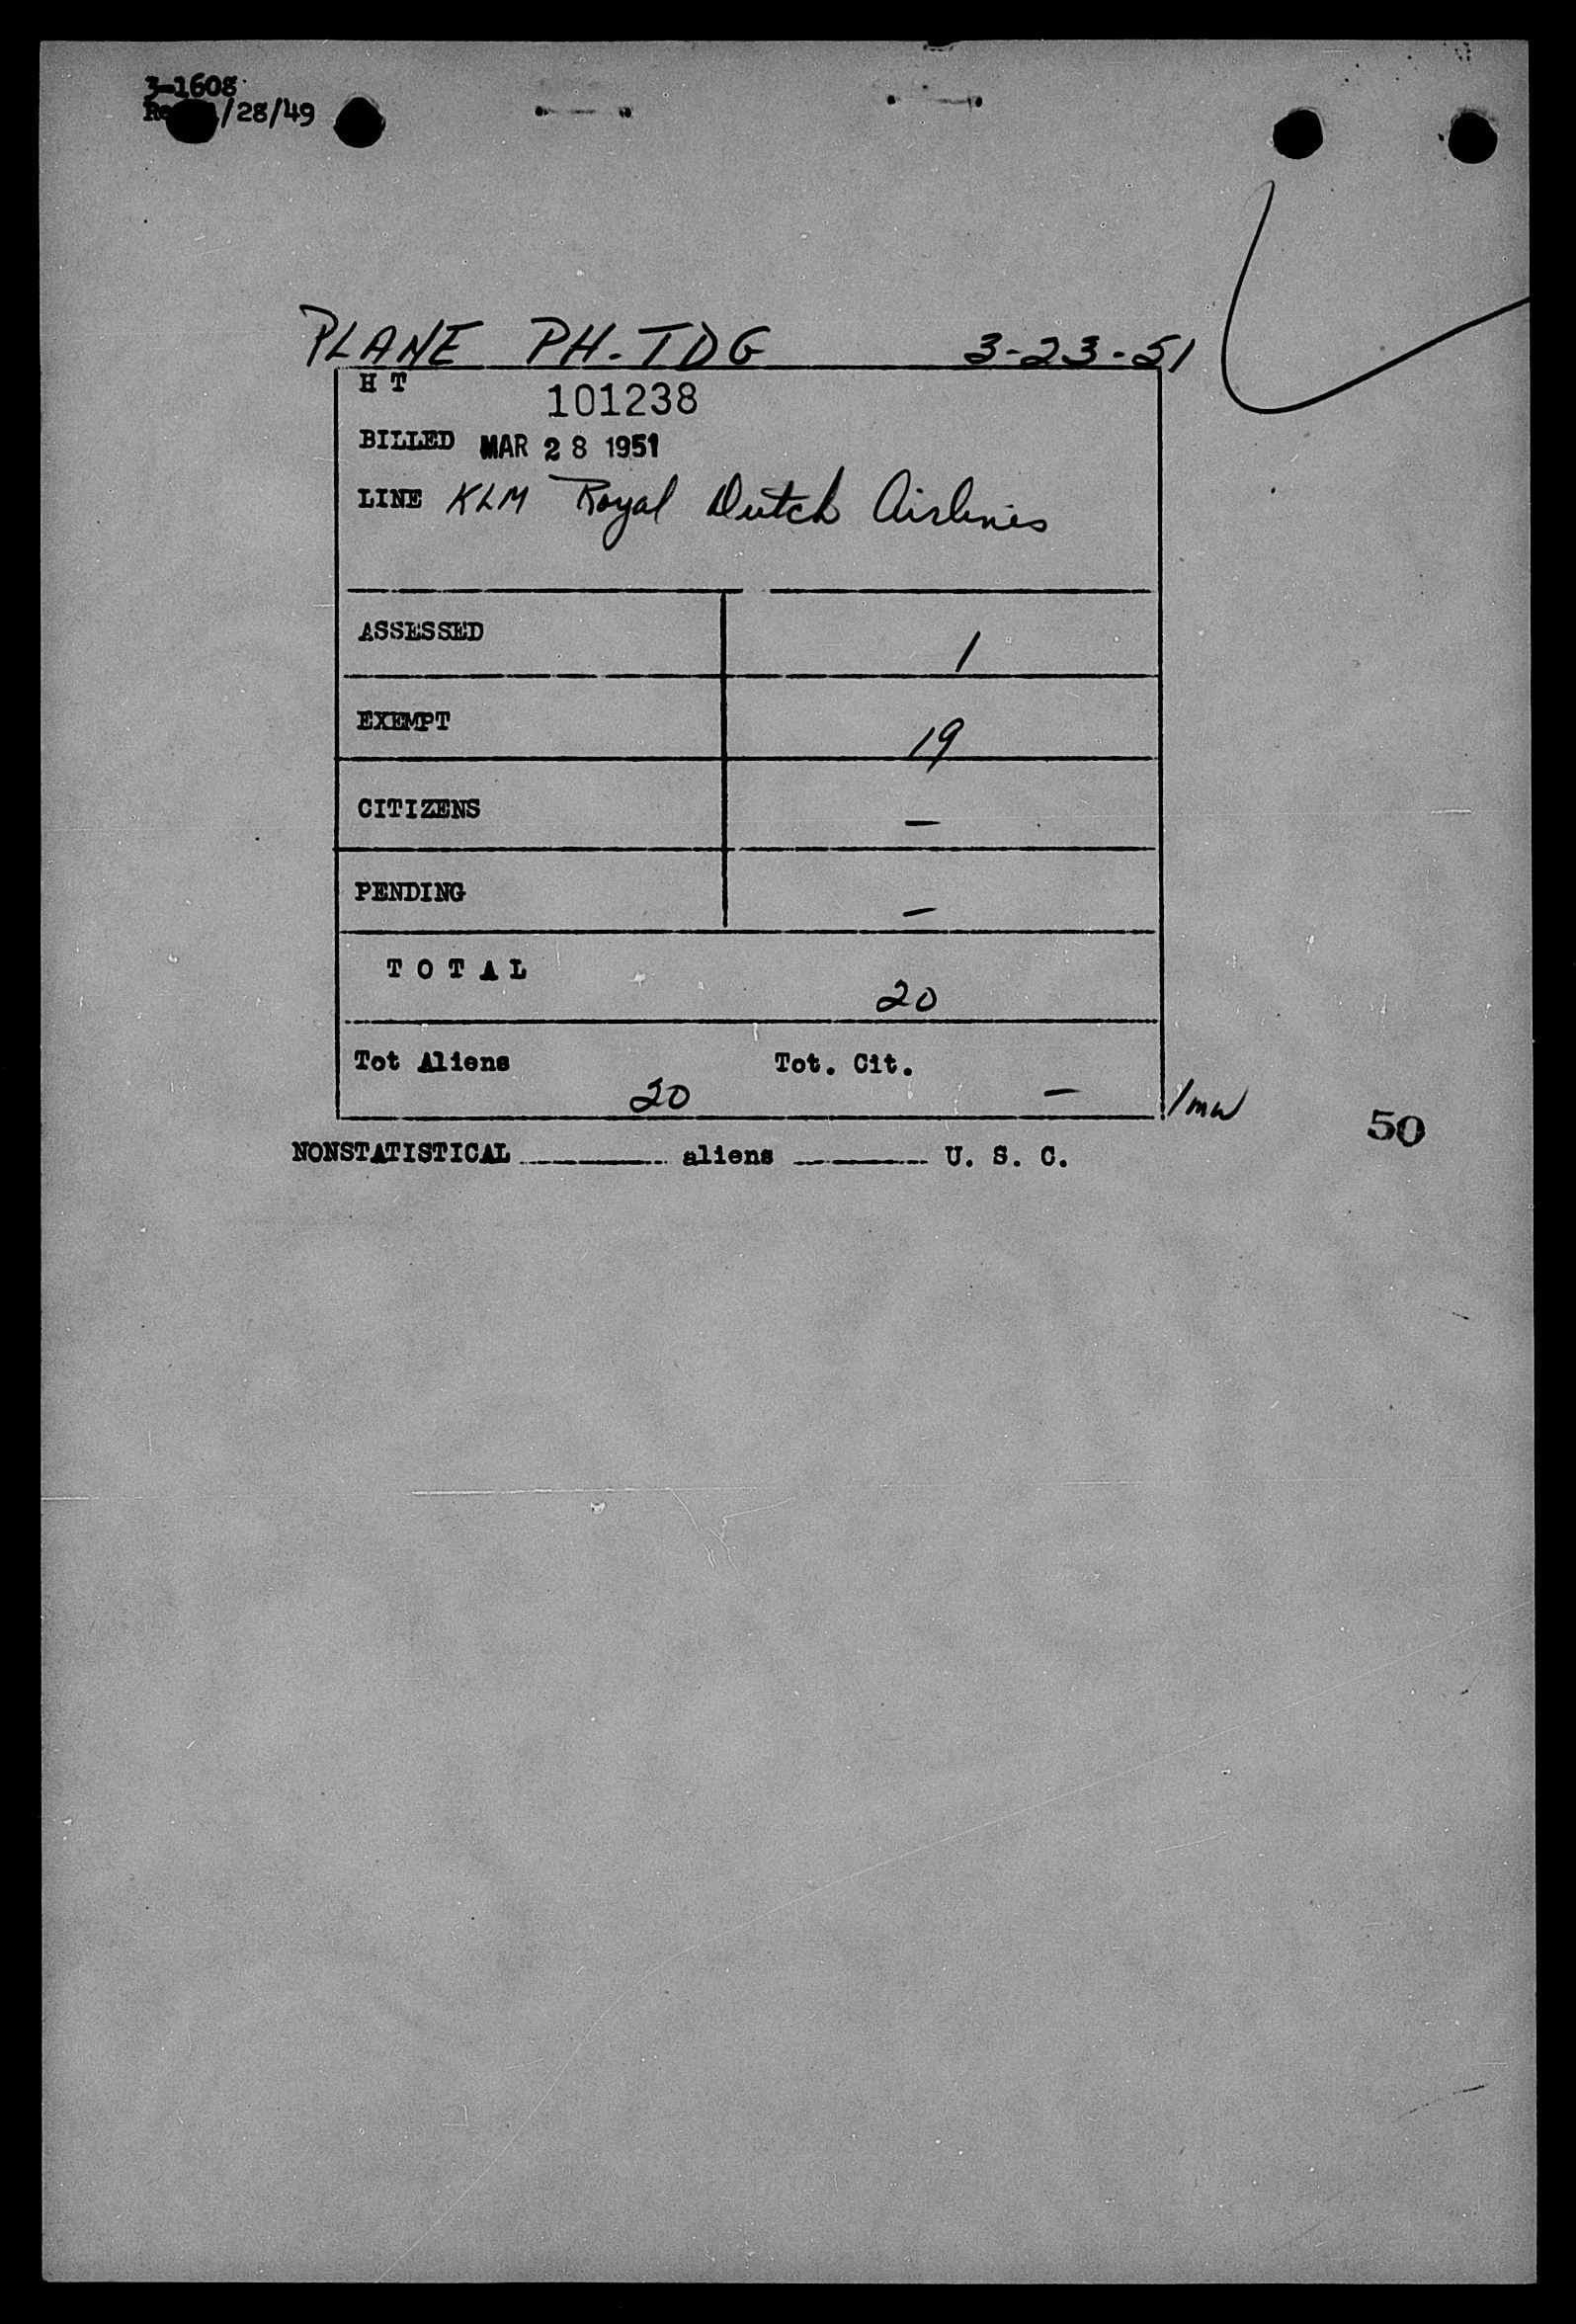 3-1608
/28/49
PLANE PH-TDG 3-23-51
H T 101238
BILLED MAR 28 1951
LINE KLM Royal Dutch Airlines
ASSESSED 1
EXEMPT 19
CITIZENS –
PENDING –
T O T A L 20
Tot Aliens 20 Tot. Cit. –
/mw
50
NONSTATISTICAL ______ aliens ______ U. S. C.